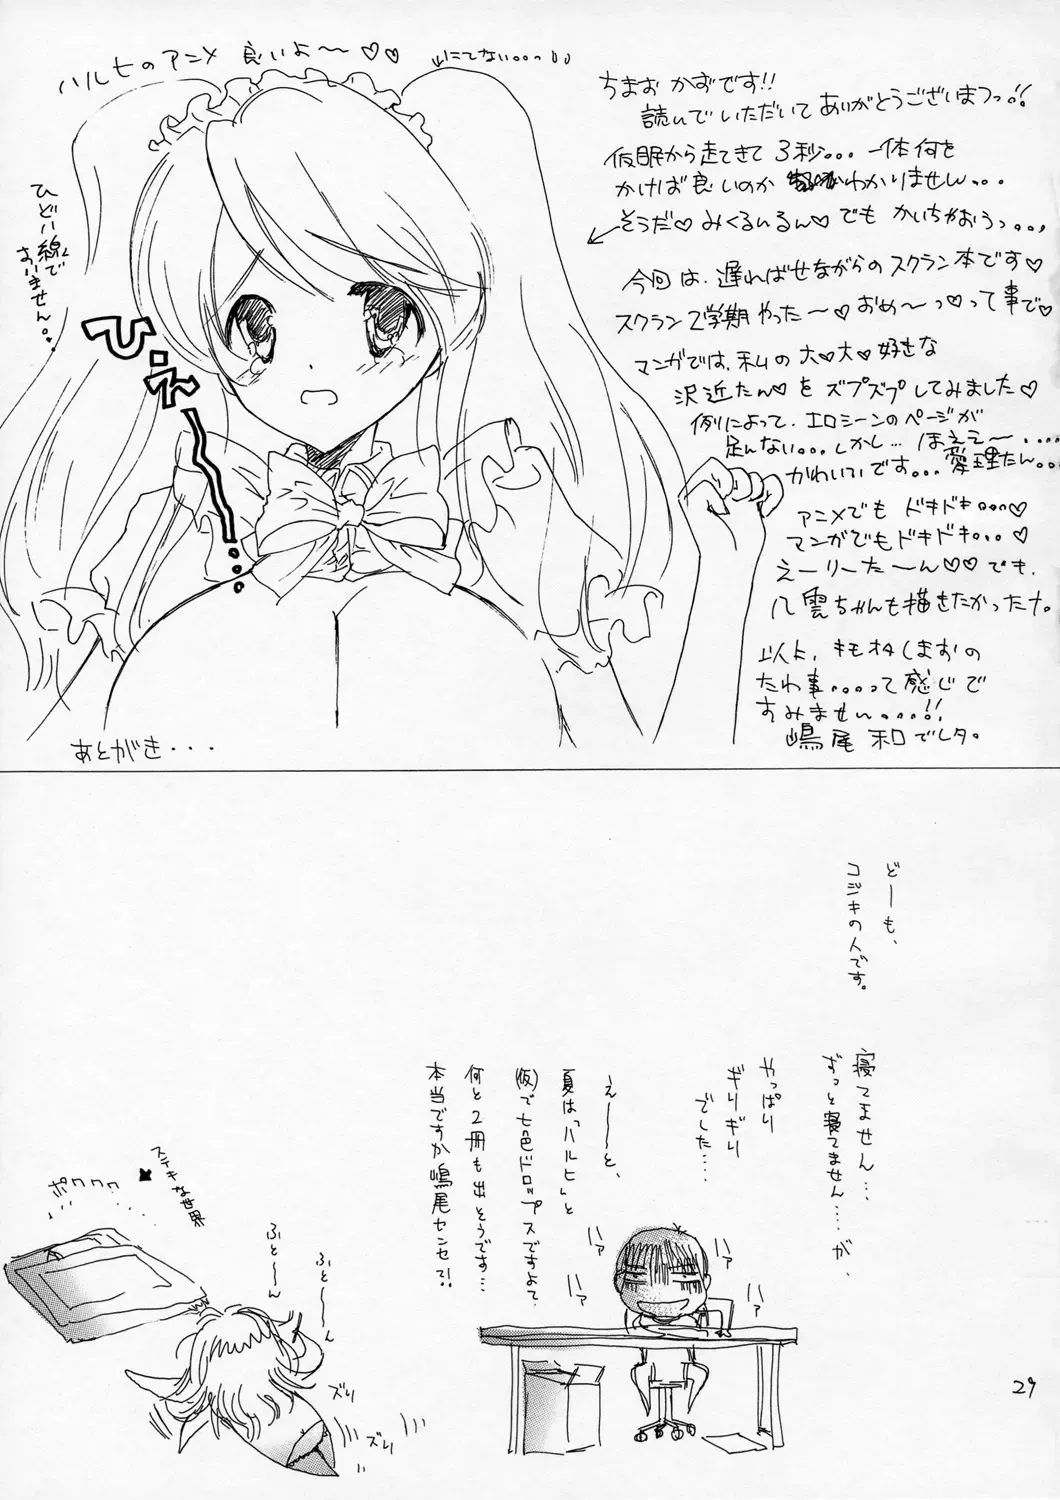 ハルヒのアニメ 良いよ〜♡♡
↓にてない。。っ
ひどい線で
すいませんっ。。
ひ・え
ちまお かずです!!
読んでいただいてありがとうございまつっ!!
仮眠から起きてきて 3秒。。。一体何を
かけば良いのか わかりません。。。
そうだ♡みくるぃるん♡でも かいちゃおうっ。。。
今回は、遅ればせながらのスクラン本です♡
スクラン2学期やった〜♡おめ〜っ♡って事で♡
マンガでは、私の大♡大♡好きな
沢近たん♡をズプズプしてみました♡
例によって、エロシーンのページが
足んない。。。しかし… ほええ〜・・・・
かわいいです。。。愛理たん。。。
アニメでも ドキドキ。。。♡
マンガでもドキドキ。。。♡
えーりーた〜ん♡♡でも、
八雲ちゃんも描きたかったナ。
以上、キモオタしまおの
たわ事。。。。って感じで
すみません。。。。!!
嶋尾 和でしタ。
あとがき・・・
どーも、
コジキの人です。
寝てません…
ずっと寝てません……が、
やっぱり
ギリギリ
でした…
えーーと、
夏は「ハルヒ」と
(仮)で七色ドロップスですよて、
何と2冊も出そうです…
本当ですか嶋尾センセ?!
ステキな世界
ポワワワ
ふとーーん
ふとーーん
ズリ
ズリ
ハァ
ハァ
ハァ
ハァ
29